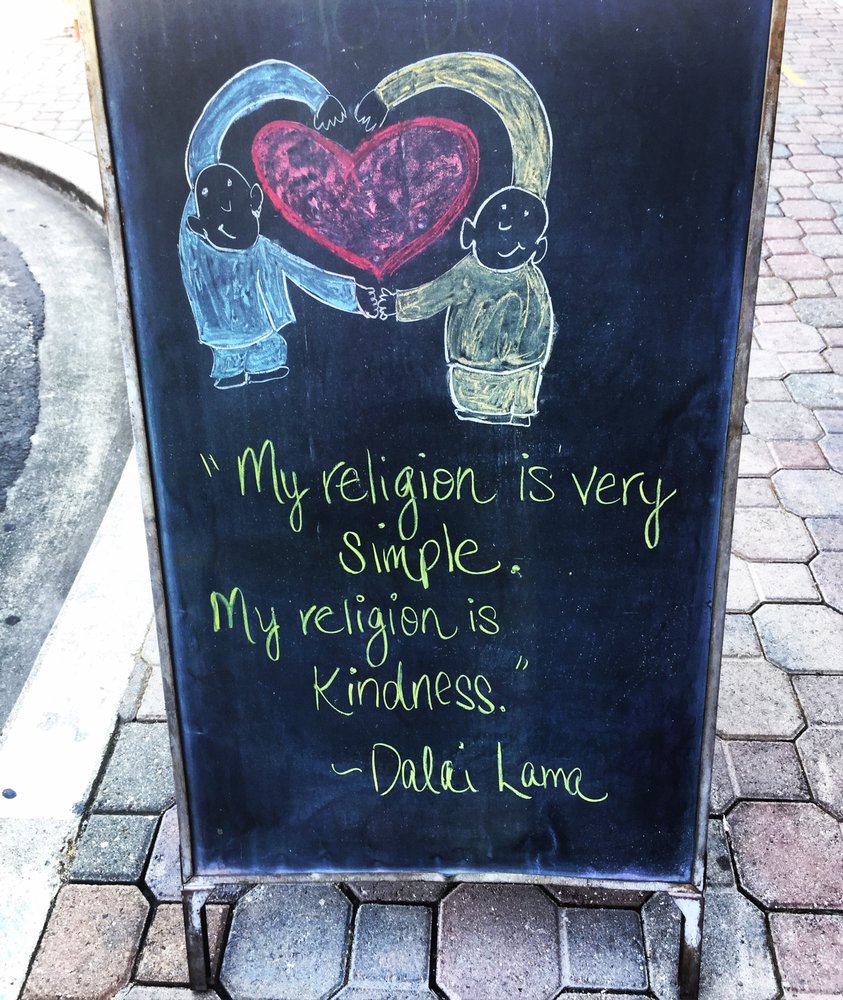 "My religion is very
simple.
My religion is
Kindness."
~Dalai Lama